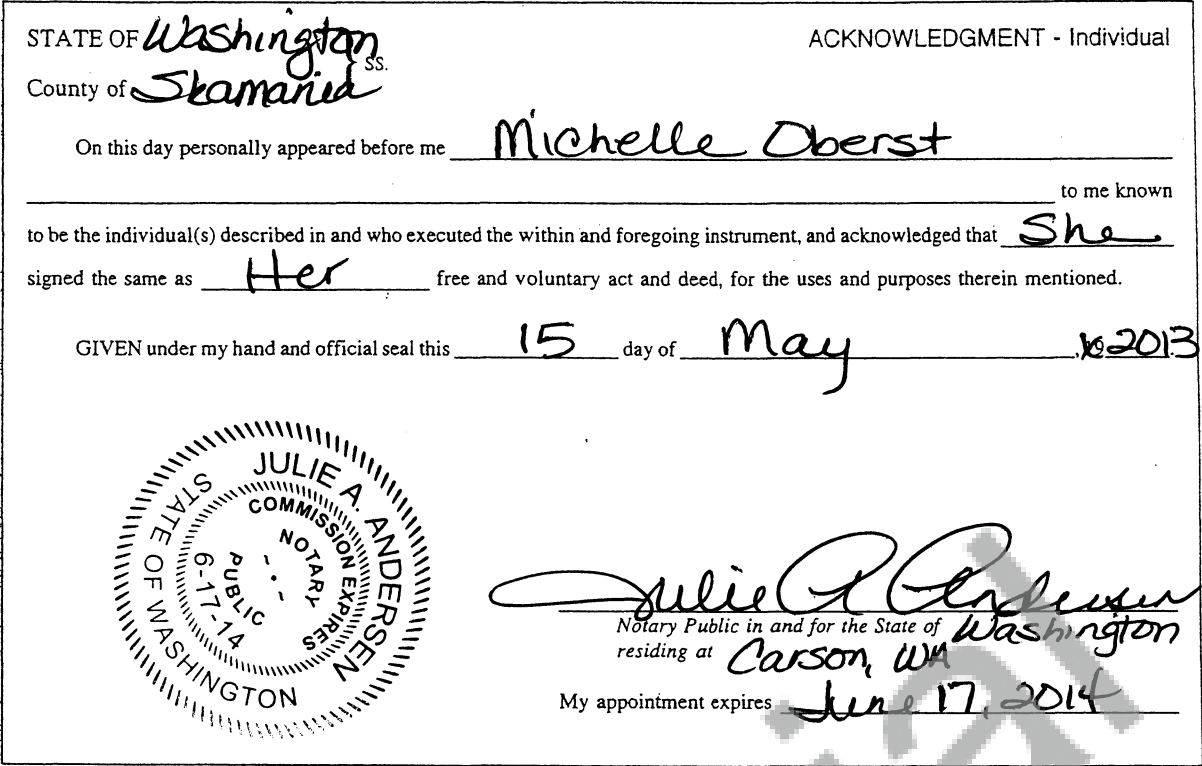 STATE OF Washington
ACKNOWLEDGMENT - Individual
ss.
County of Skamania
On this day personally appeared before me Michelle Oberst
to me known
to be the individual(s) described in and who executed the within and foregoing instrument, and acknowledged that She
signed the same as Her free and voluntary act and deed, for the uses and purposes therein mentioned.
GIVEN under my hand and official seal this 15 day of May , 19 2013
JULIE A. ANDERSEN
STATE OF WASHINGTON
COMMISSION EXPIRES
6-17-14
NOTARY
PUBLIC
Julie A Andersen
Notary Public in and for the State of Washington
residing at Carson, WA
My appointment expires June 17, 2014